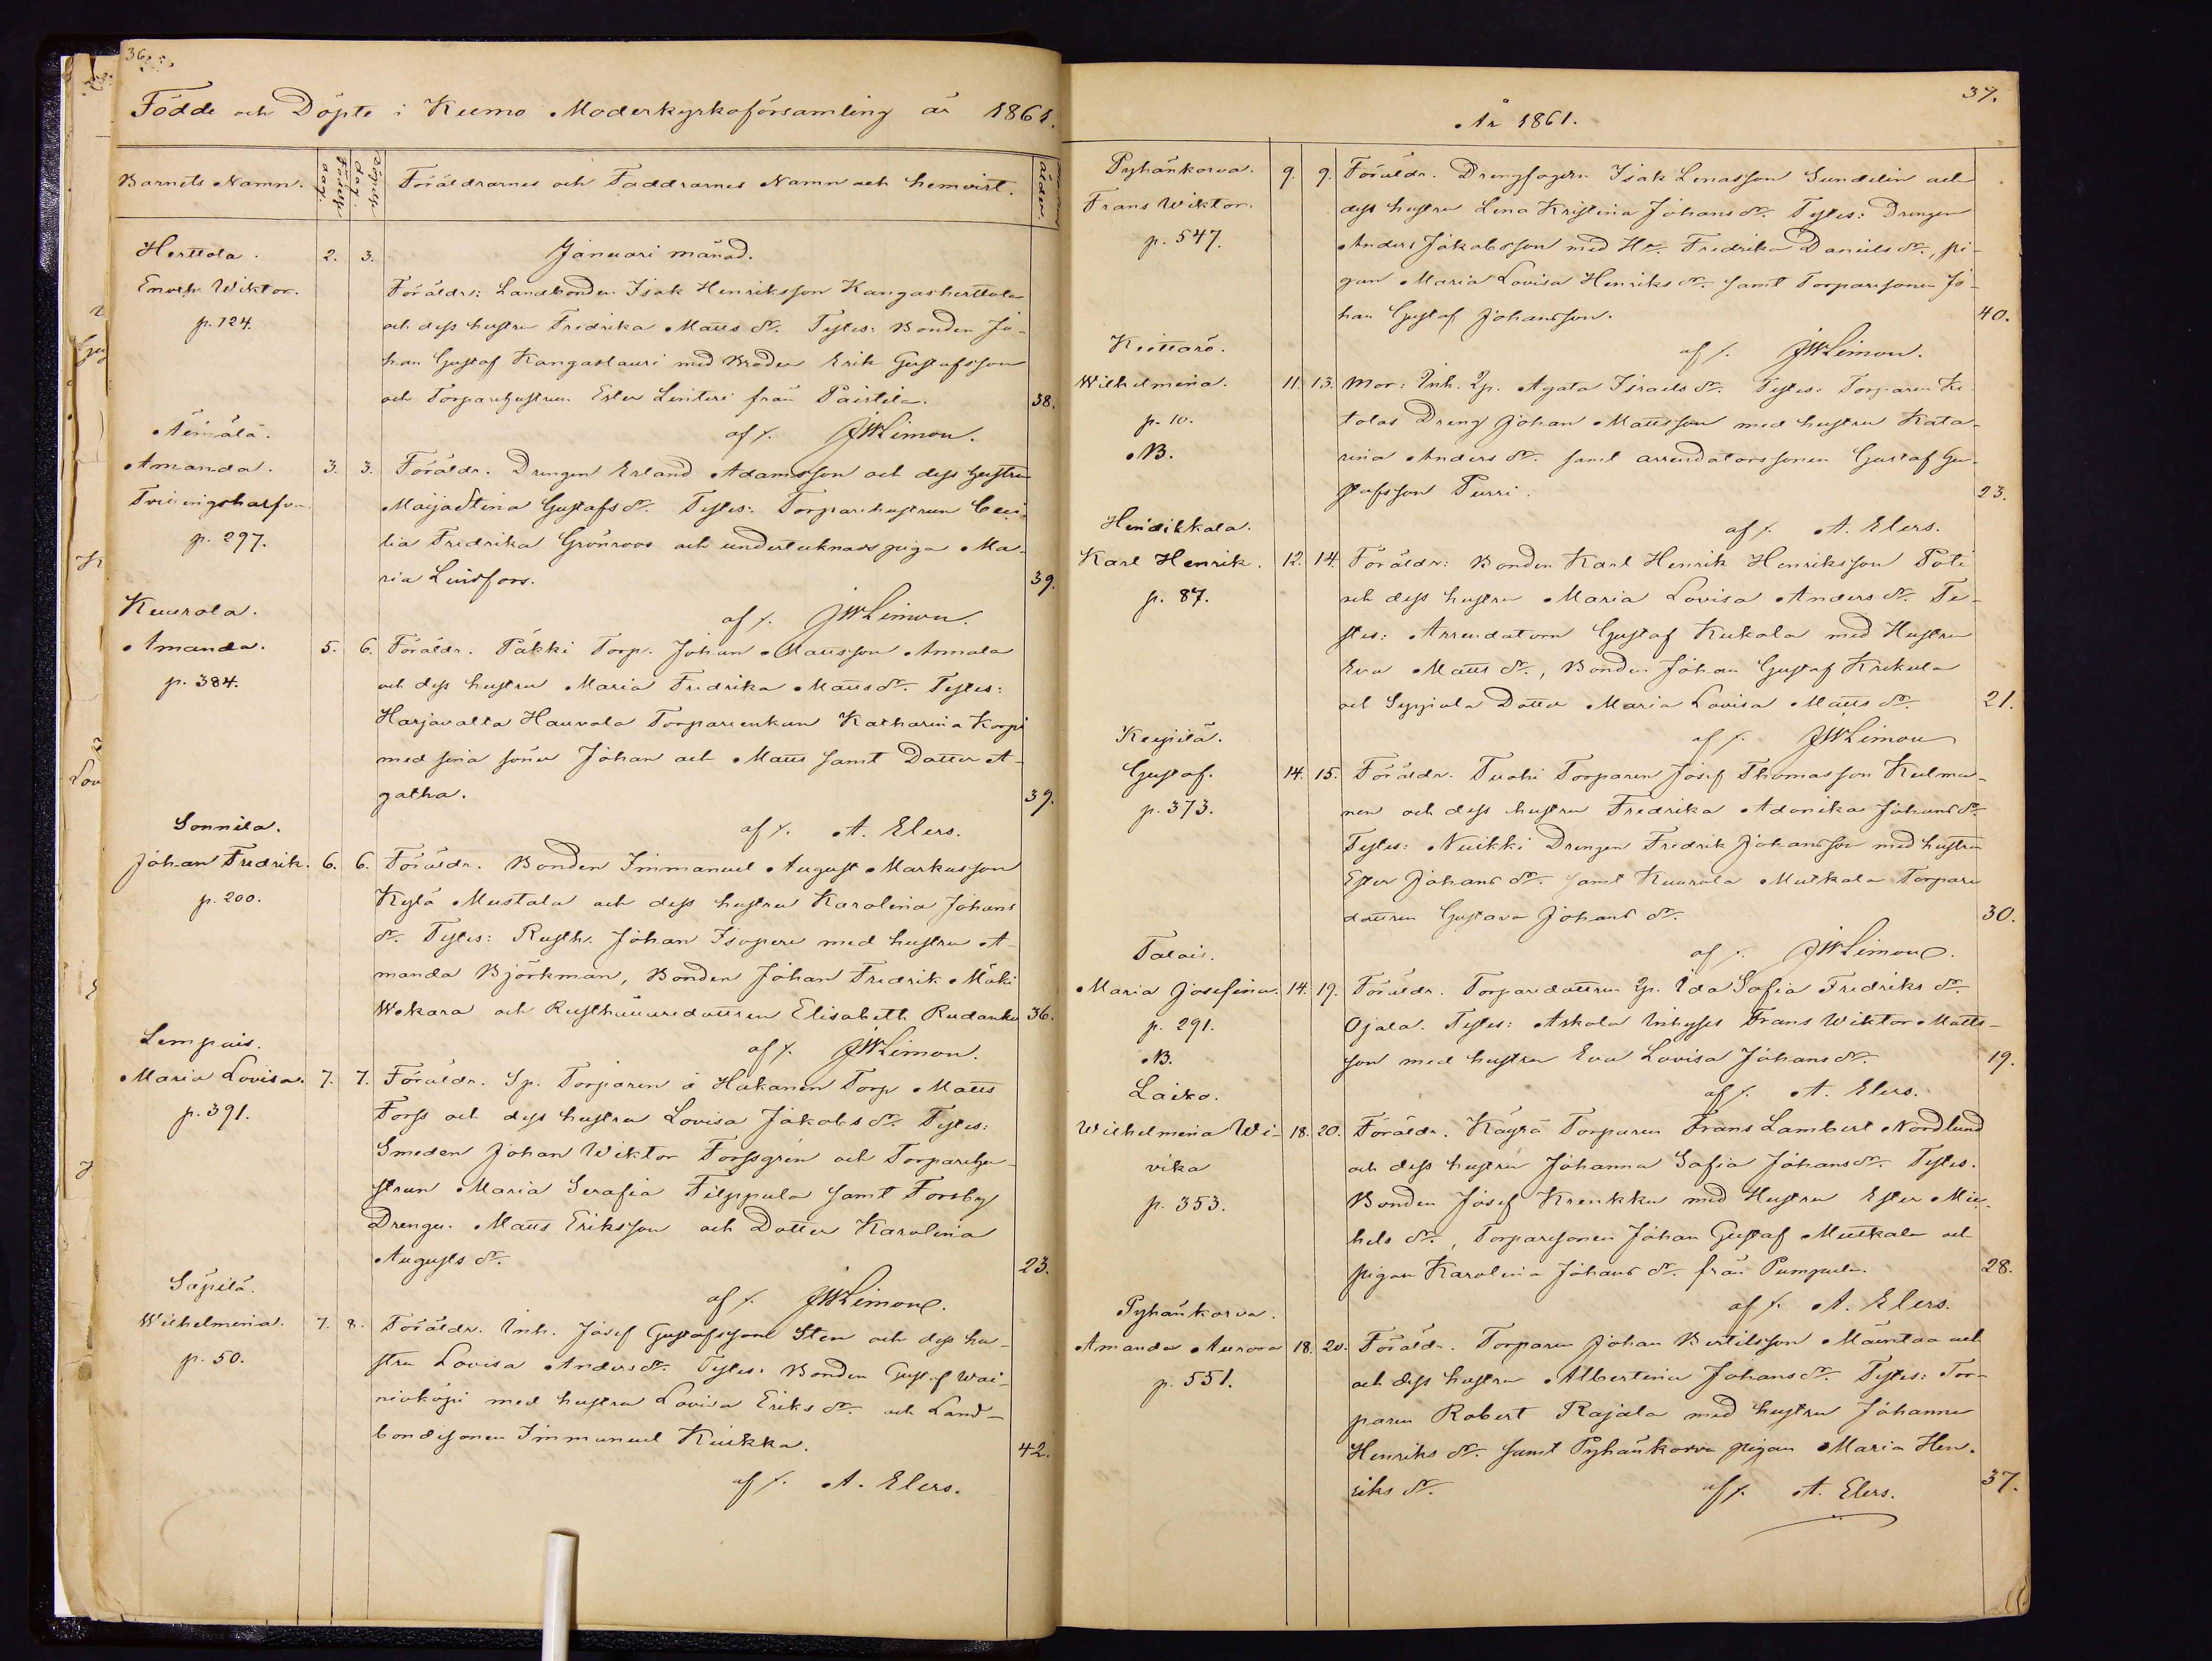 36.
Födde och Döpte i Kumo Moderkyrkoförsamling år 1861.
Barnets Namn.
Födelse dag.
Döpelse dag.
Föräldrarnes och Faddrarnes Namn och hemvist.
ålder.
Januari månad.
Herttola. 2. 3.
Enoch Wiktor.
p. 124.
Föräldr: Landbonden Isak Henriksson Kangasherttola
och dess hustru Fredrika Matts dr. Testes: Bonden Jo-
han Gustaf Kangaslauri med Broder Erik Gustafsson
och Torparehustrun Ester Linteri från Paistila. 38.
af f. JWLimon.
Äimälä.
Amanda. 3. 3.
p. 297.
Föräldr. Drengen Erland Adamsson och dess hustru
Maija Stina Gustafs dr. Testes: Torparehustrun Ceci-
lia Fredrika Grönroos och undertecknads piga Ma-
ria Lindfors. 39.
af f. JWLimon.
Kuurola.
Amanda. 5. 6.
p. 384.
Föräldr. Päkki Torp. Johan Mattsson Annala
och dess hustru Maria Fredrika Matts dr. Testes:
Harjavalta Hauvola Torpareenkan Katharina Korpi
med sina söner Johan och Matts samt Dotter A-
gatha. 39.
af f. A. Elers.
Sonnila.
Johan Fredrik. 6. 6.
p. 200.
Föräldr. Bonden Immanuel August Markusson
Kylä Mustala och dess hustru Karolina Johans
dr. Testes: Rusth. Johan Isopere med hustru A-
manda Björkman, Bonden Johan Fredrik Mäki
Wokara och Rusthållaredottren Elisabeth Rudanko 36.
af f. JWLimon.
Lempais.
Maria Lovisa. 7. 7.
p. 391.
Föräldr. Sp. Torparen å Hakanen Torp Matts
Forss och dess hustru Lovisa Jakobs dr. Testes:
Smeden Johan Wiktor Forssgrén och Torparehu-
strun Maria Serafia Filppula samt Forsby
Drengen Matts Eriksson och Dotter Karolina
Augusts dr. 23.
af f. JWLimon.
Säpilä.
Wilhelmina. 7. 8.
p. 50.
Föräldr. Inh. Josef Gustafsson Sten och dess hu-
stru Lovisa Anders dr. Testes: Bonden Gustaf Wai-
med hustru Lovisa Eriks dr. och Land-
bondesonen Immanuel Kuikka. 42.
af f. A. Elers.
37.
År 1861.
Pyhänkorva. 9. 9.
Frans Wiktor.
p. 547.
Föräldr. Drengfogden Isak Lenasson Sundelin och
dess hustru Lena Kristina Johans dr. Testes: Drengen
Anders Jakobsson med Hu. Fredrika Daniels dr., pi-
gan Maria Lovisa Henriks dr. samt Torparesonen Jo-
han Gustaf Johansson. 40.
af f. JWLimon.
Kiettarö.
Wilhelmina. 11. 13.
p. 10.
NB.
Mor: Inh. Qp. Agata Israels dr. Testes: Torparen Ki-
tolas Dreng Johan Mattsson med hustru Kata-
rina Anders dr. samt arrendatorssonen Gustaf Gu-
stafsson Purri. 23.
af f. A. Elers.
Hendikkala.
Karl Henrik. 12. 14.
p. 87.
Föräldr: Bonden Karl Henrik Henriksson Poti
och dess hustru Maria Lovisa Anders dr. Te-
stes: Arrendatorn Gustaf Kukola med Hustru
Eva Matts dr., Bonden Johan Gustaf Krekula
och Dotter Maria Lovisa Matts dr. 21.
af f. JWLimon
Keipilä.
Gustaf. 14. 15.
p. 373.
Föräldr. Tuohi Torparen Josef Thomasson Kulma-
nen och dess hustru Fredrika Adonika Johans dr.
Testes: Nuikki Drengen Fredrik Johansson med hustru
Ester Johans dr. samt Kuurola Mutkala Torpare
dottren Gustava Johans dr. 30.
af f. JWLimon.
Talais.
Maria Josefina. 14. 19.
p. 291.
NB.
Föräldr. Torparedottren Qp. Ida Sofia Fredriks dr.
Ojala. Testes: Askola Inhyses Frans Wiktor Matts-
son med hustru Eva Lovisa Johans dr. 19.
af f. A. Elers.
Laiko.
Wilhelmina Wi- 18. 20.
vika
p. 353.
Föräldr. Käyrä Torparen Frans Lambert Nordlund
och dess hustru Johanna Sofia Johans dr. Testes.
Bonden Josef Krenkku med Hustru Ester Mic-
hels dr., Torparesonen Johan Gustaf Mutkala och
pigan Karolina Johans dr. från Pumpula. 28.
af f. A. Elers.
Pyhänkorva.
Amanda Aurora 18. 20.
p. 551.
Föräldr. Torparen Johan Bertilsson Mäintaa och
och dess hustru Albertina Johans dr. Testes: Tor-
paren Robert Rajala med hustru Johanna
Henriks dr. samt Pyhänkorva pigan Maria Hen-
riks dr. 37.
af f. A. Elers.